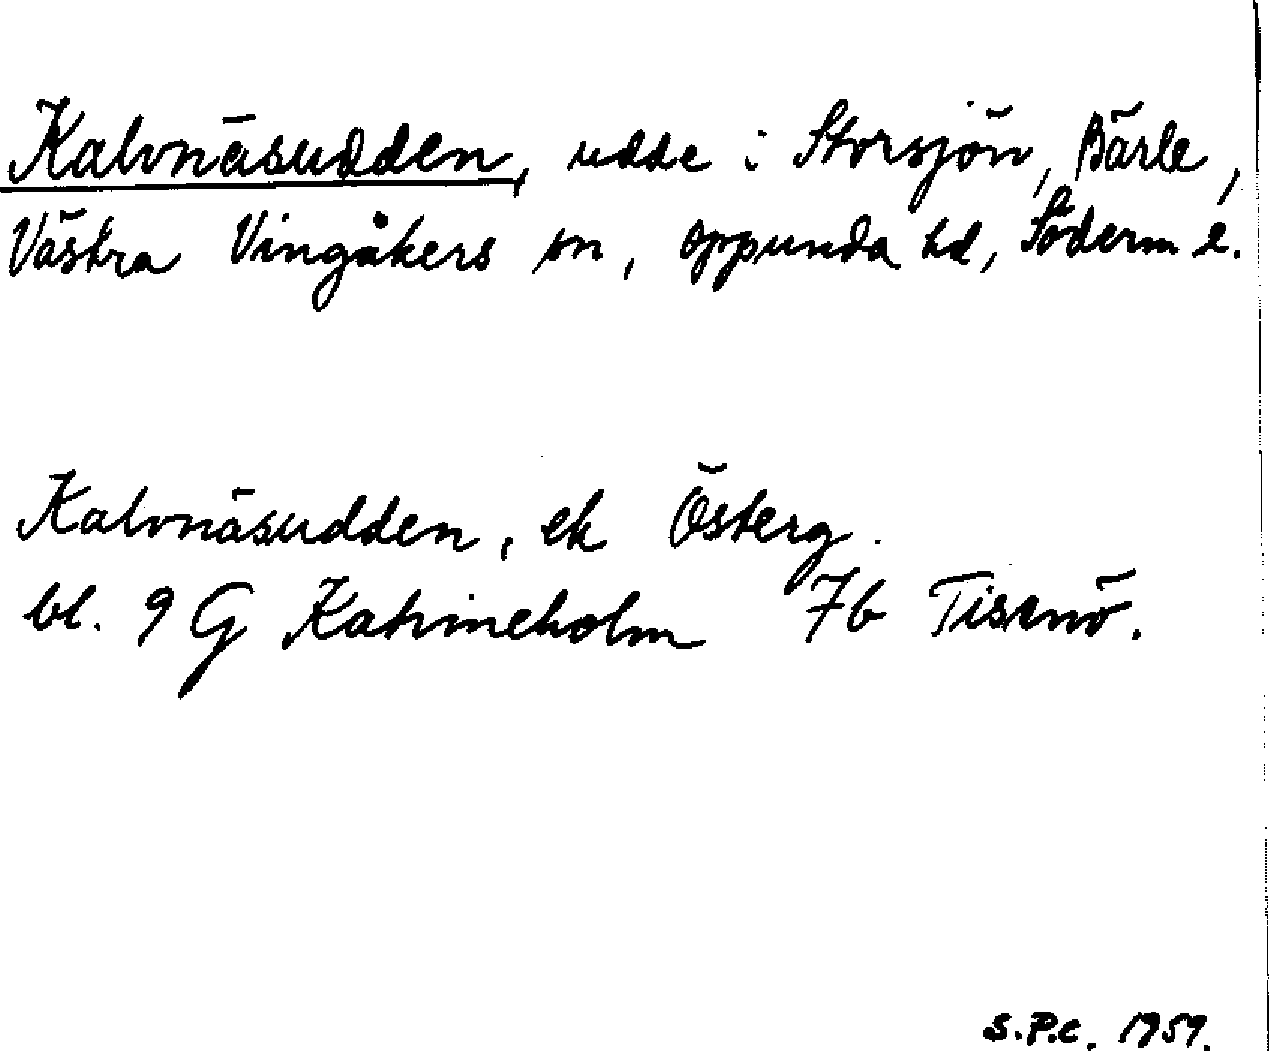 Kalvnäsudden, udde i Storsjön, Bärle,
Västra Vingåkers sn, Oppunda hd, Söderm l.
Kalvnäsudden, ek Österg.
bl. 9 G Katrineholm 7b Tisenö.
S.P.C. 1959.